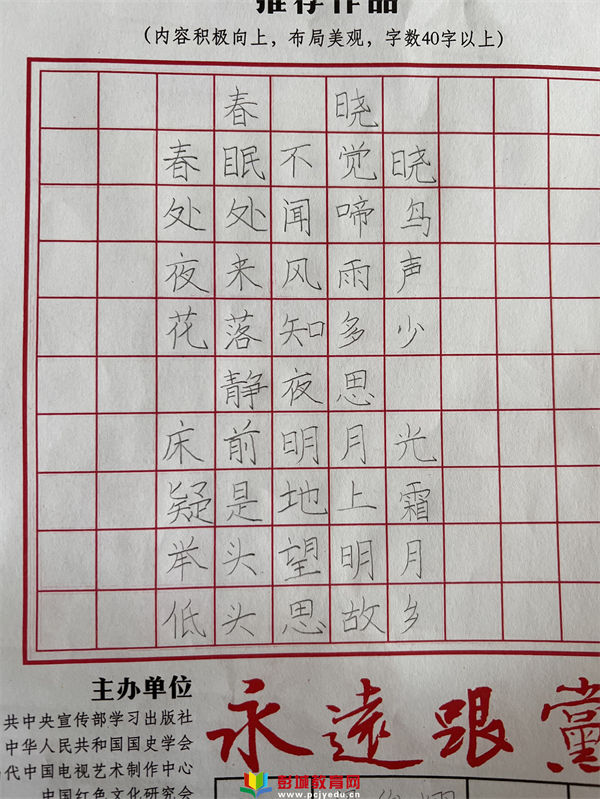 推荐作品
(内容积极向上，布局美观，字数40字以上)
春 晓
春眠不觉晓
处处闻啼鸟
夜来风雨声
花落知多少
静夜思
床前明月光
疑是地上霜
举头望明月
低头思故乡
主办单位
共中央宣传部学习出版社
中华人民共和国国史学会
代中国电视艺术制作中心
中国红色文化研究会
永遠跟黨
彭城教育网
www.pcjyedu.cn